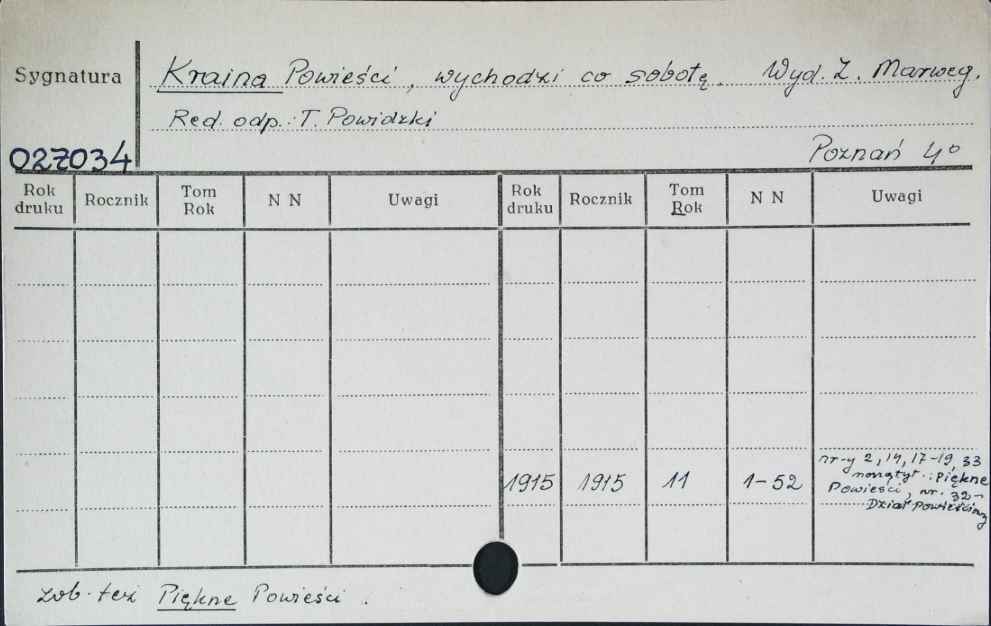 Sygnatura
Kraina Powieści, wychodzi co sobotę. Wyd. Z. Marweg.
Red. odp.: T. Powidzki
027034
Poznań 4°
Rok druku Rocznik Tom Rok N N Uwagi Rok druku Rocznik Tom Rok N N Uwagi
1915 1915 11 1-52
nr-y 2, 14, 17-19, 33
nonątyt.: Piękne
Powieści, nr. 32-
Dział powieściowy
zob. też Piękne Powieści.